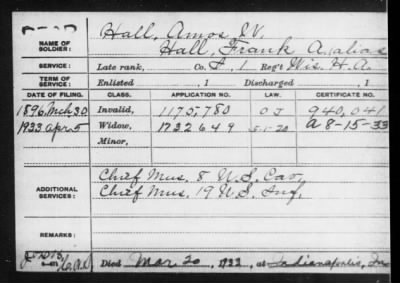 NAME OF SOLDIER: Hall, Amos J.V.
Hall, Frank A. alias
SERVICE: Late rank, Co. F, 1 Reg't Wis. H.A.
TERM OF SERVICE: Enlisted , 1 Discharged , 1
DATE OF FILING. CLASS. APPLICATION NO. LAW. CERTIFICATE NO.
1896 Mch 30 Invalid, 1175,780 940,041
1933 Apr 5 Widow, 1732649 5-1-20 A 8-15-33
Minor,
ADDITIONAL SERVICES: Chief Mus. 8 U.S. Cav.
Chief Mus. 19 U.S. Inf.
REMARKS:
Died Mar 20, 1933, at Indianapolis, In